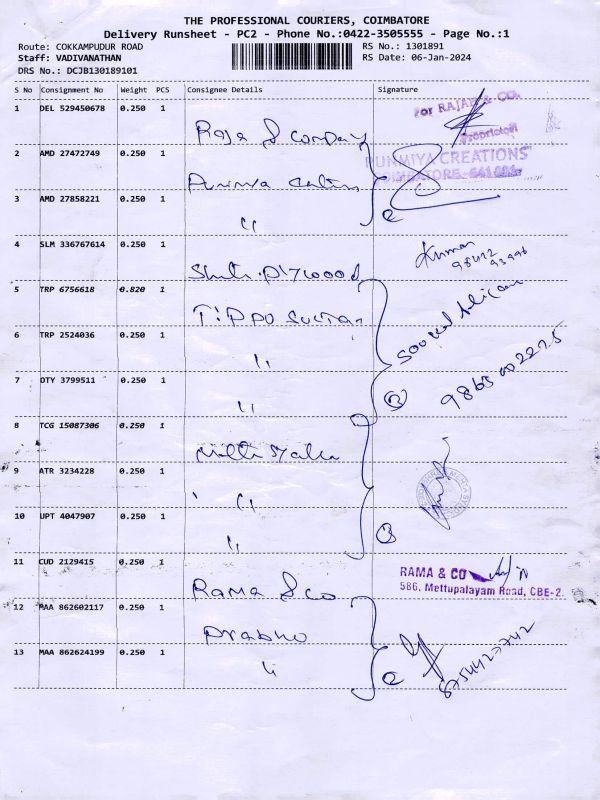 THE PROFESSIONAL COURIERS, COIMBATORE
Delivery Runsheet - PC2 - Phone No.:0422-3505555 - Page No.:1
Route: COKKAMPUDUR ROAD
Staff: VADIVANATHAN
DRS No.: DCJB130189101
RS No.: 1301891
RS Date: 06-Jan-2024
S No Consignment No Weight PCS Consignee Details Signature
1 DEL 529450678 0.250 1
For RAJA & CO.
Proprietor
Raja & company
2 AMD 27472749 0.250 1
PUNMIYA CREATIONS
COIMBATORE-641
Punmya
3 AMD 27858221 0.250 1
"
4 SLM 336767614 0.250 1
Kumar
Plywood
5 TRP 6756618 0.820 1
Tippu Sultan
6 TRP 2524036 0.250 1
"
7 DTY 3799511 0.250 1
"
③
8 TCG 15087306 0.250 1
9 ATR 3234228 0.250 1
"
10 UPT 4047907 0.250 1
"
③
11 CUD 2129415 0.250 1
RAMA & CO
586, Mettupalayam Road, CBE-2.
Rama & co
12 MAA 862602117 0.250 1
Prabhu
13 MAA 862624199 0.250 1
"
8754423742